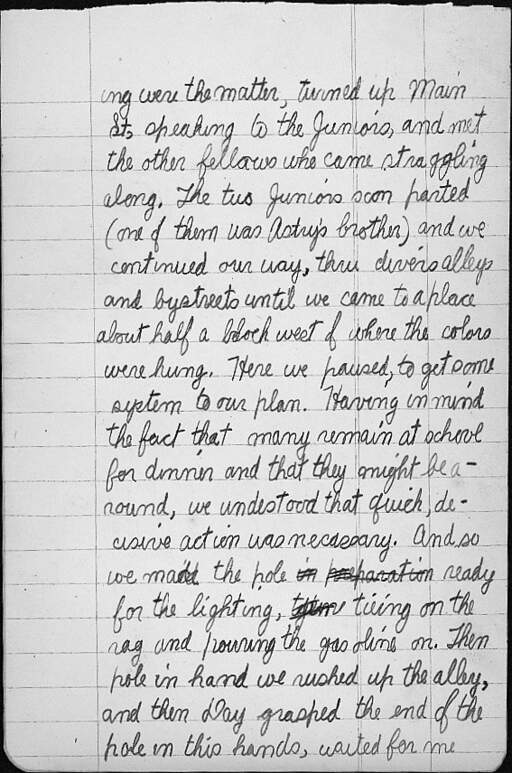 ing were the matter, turned up Main
St. speaking to the Juniors, and met
the other fellows who came straggling
along. The two Juniors soon parted
(one of them was Astry's brother) and we
continued our way, thru divers alleys
and bystreets until we came to a place
about half a block west of where the colors
were hung. Here we paused, to get some
system to our plan. Having in mind
the fact that many remain at school
for dinner and that they might be a-
round, we undestood that quick, de-
cisive action was necessary. And so
we made the pole in preparation ready
for the lighting, tieing on the
rag and pouring the gasoline on. Then
pole in hand we rushed up the alley,
and then Day grasped the end of the
pole in this hands, waited for me